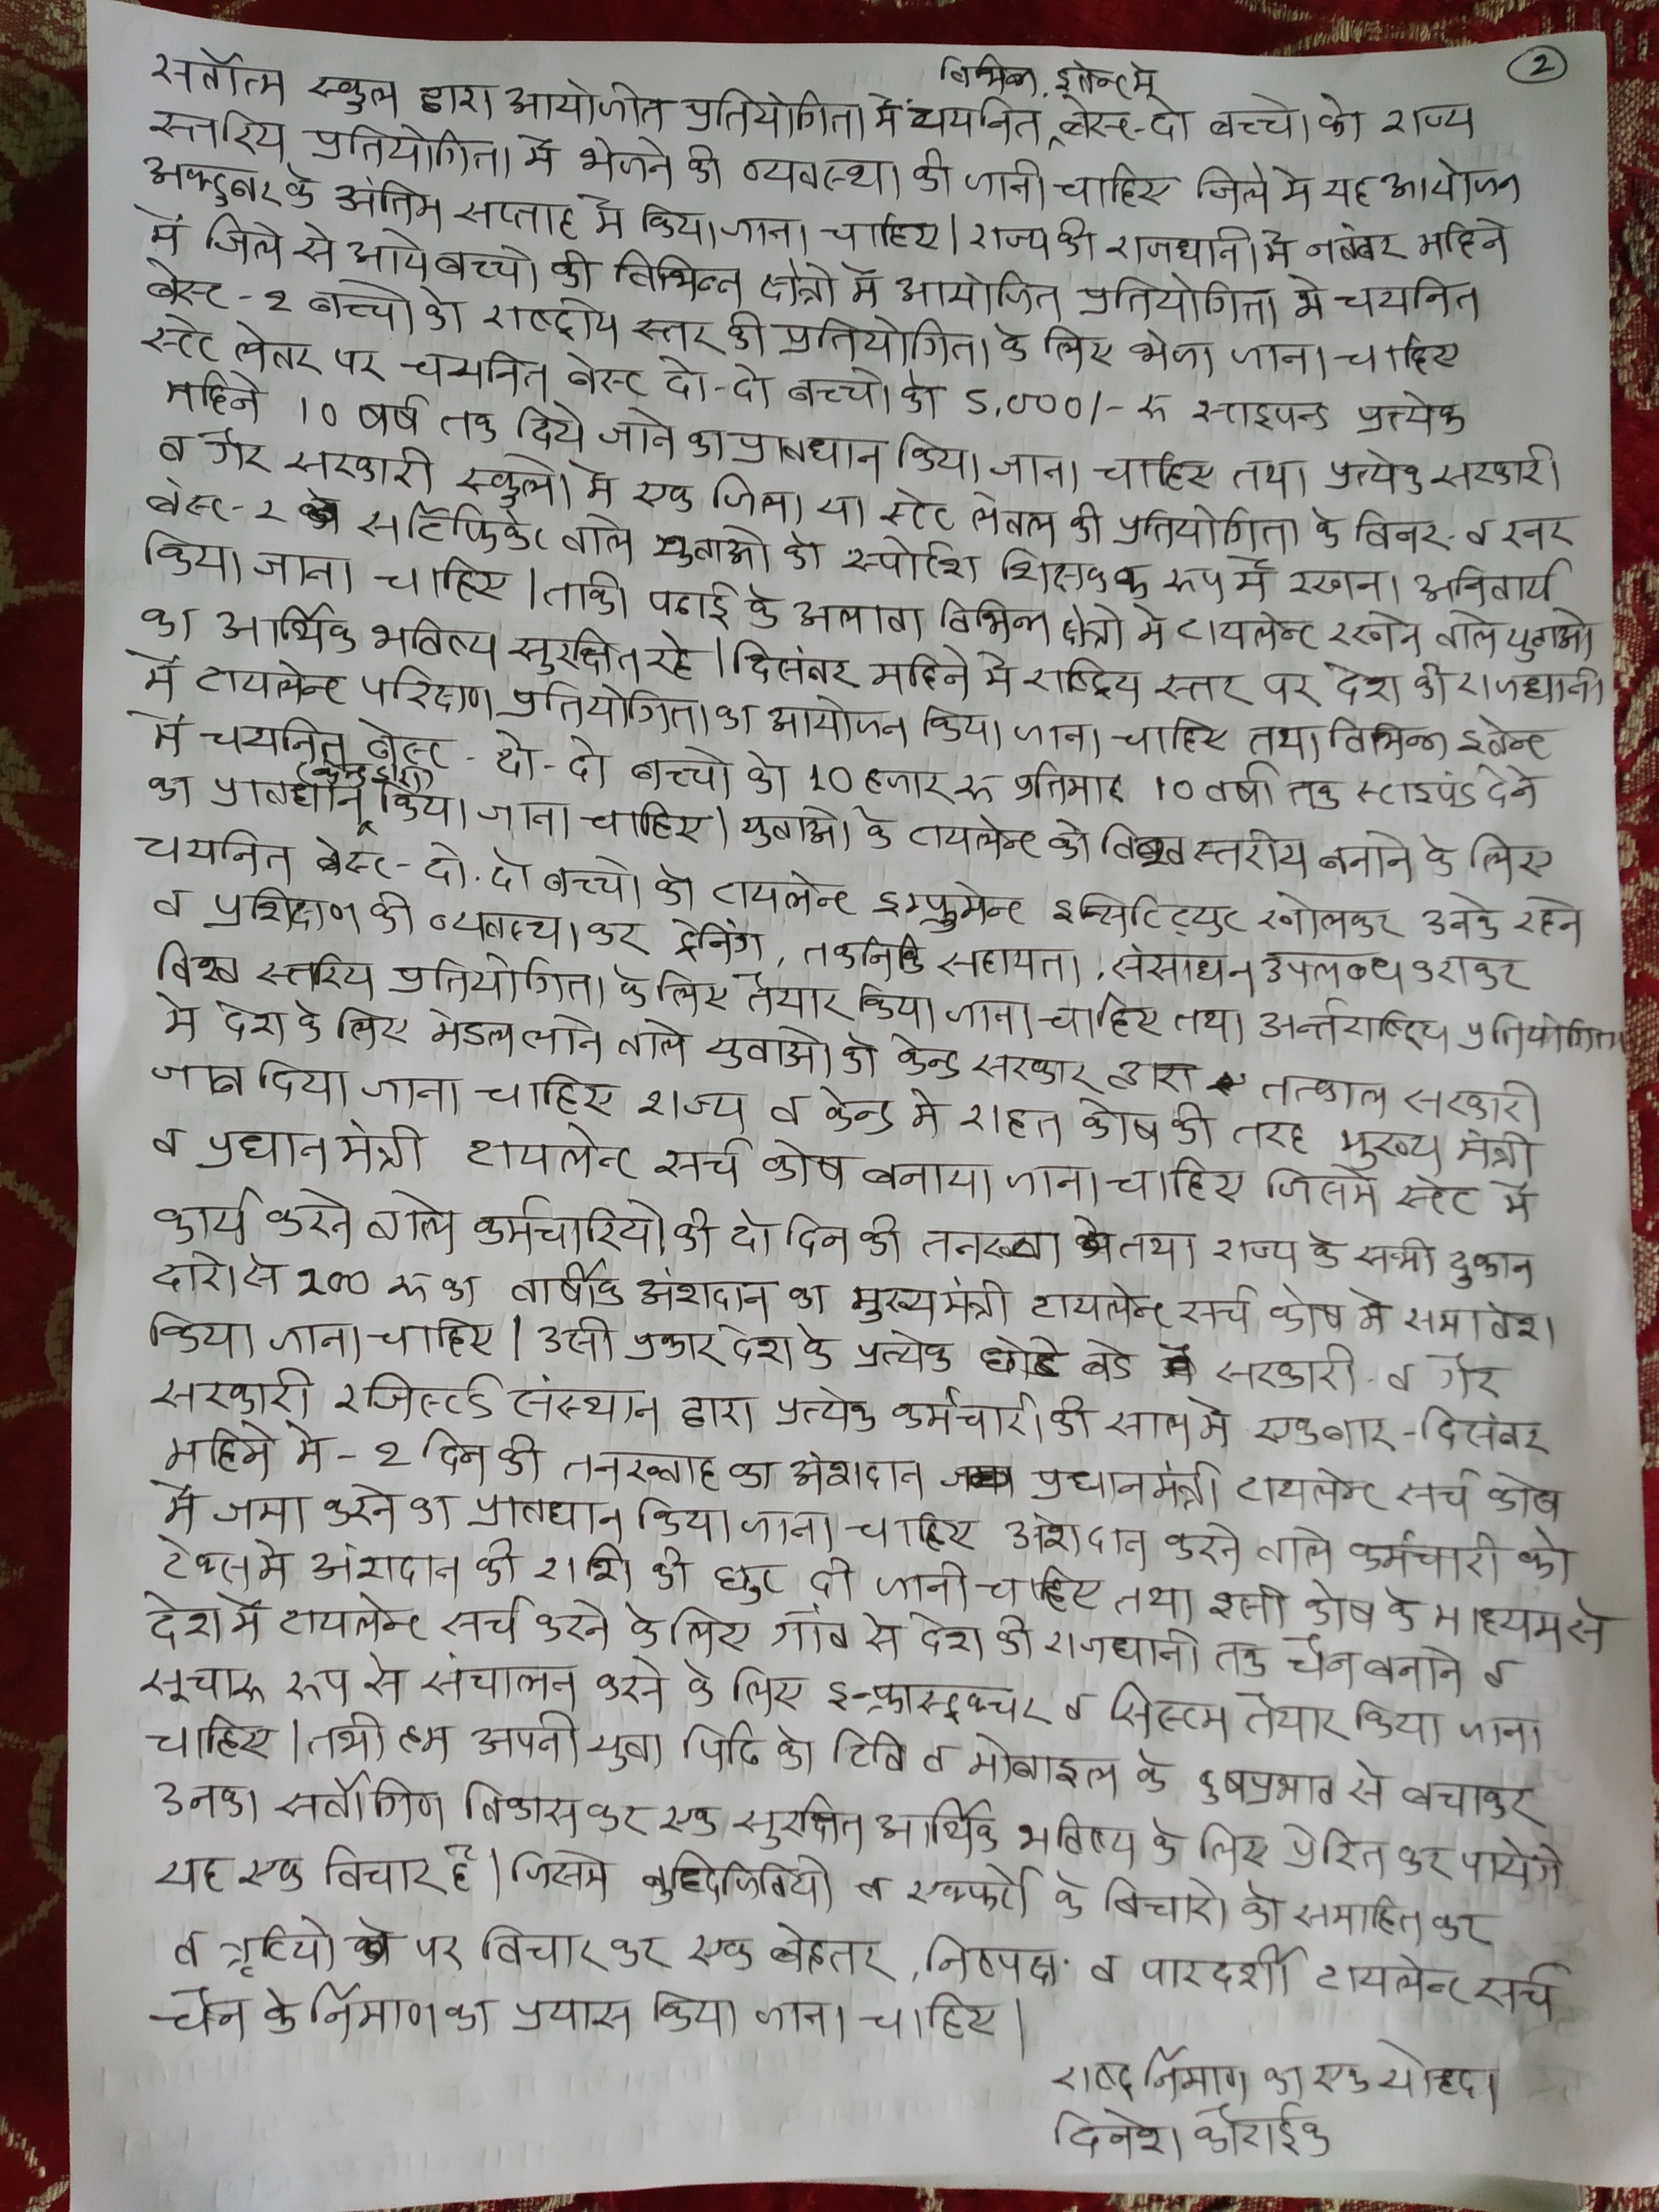 2
विभिन्न इवेन्ट मे
सर्वोत्म स्कुल द्वारा आयोजीत प्रतियोगिता मे चयनित बेस्ट-दो बच्चो को राज्य
स्तरिय प्रतियोगिता में भेजने की व्यवस्था की जानी चाहिए जिले मे यह आयोजन
अक्टुबर के अंतिम सप्ताह में किया जाना चाहिए। राज्य की राजधानी मे नवंबर महिने
में जिले से आये बच्चो की विभिन्न क्षेत्रो में आयोजित प्रतियोगिता मे चयनित
बेस्ट-2 बच्चो को राष्ट्रीय स्तर की प्रतियोगिता के लिए भेजा जाना चाहिए
स्टेट लेवर पर चयनित बेस्ट दो-दो बच्चो को 5,000/- रु स्टाइपन्ड प्रत्येक
महिने 10 वर्ष तक दिये जाने का प्रावधान किया जाना चाहिए तथा प्रत्येक सरकारी
व गैर सरकारी स्कुलो मे एक जिला या स्टेट लेवल की प्रतियोगिता के विनर व रनर
बेस्ट-2 सर्टिफिकेट वाले युवाओ को स्पोर्टश शिक्षक के रूप में रखना अनिवार्य
किया जाना चाहिए। ताकी पढाई के अलावा विभिन्न क्षेत्रो मे टायलेन्ट रखने वाले युवाओ
का आर्थिक भविष्य सुरक्षित रहे। दिसंबर महिने मे राष्ट्रिय स्तर पर देश की राजधानी
में टायलेन्ट परिक्षण प्रतियोगिता का आयोजन किया जाना चाहिए तथा विभिन्न इवेन्ट
में चयनित बेस्ट - दो-दो बच्चो को 10 हजार रु प्रतिमाह 10 वर्षो तक स्टाइपंड देने
केन्द्र द्वारा
का प्रावधान किया जाना चाहिए। युवाओ के टायलेन्ट को विश्व स्तरीय बनाने के लिए
चयनित बेस्ट-दो-दो बच्चो को टायलेन्ट इम्प्रुमेन्ट इन्सिटिट्युट खोलकर उनके रहने
व प्रशिक्षण की व्यवस्था कर ट्रेनिंग, तकनिकि सहायता, संसाधन उपलब्ध कराकर
विश्व स्तरिय प्रतियोगिता के लिए तैयार किया जाना चाहिए तथा अर्न्तराष्ट्रिय प्रतियोगिता
मे देश के लिए मेडल लाने वाले युवाओ को केन्द्र सरकार द्वारा तत्काल सरकारी
जाब दिया जाना चाहिए राज्य व केन्द्र मे राहत कोष की तरह मुख्य मंत्री
व प्रधान मंत्री टायलेन्ट सर्च कोष बनाया जाना चाहिए जिसमे स्टेट में
कार्य करने वाले कर्मचारियो की दो दिन की तनख्वा तथा राज्य के सभी दुकान
दारो से 200 रु का वार्षीक अंशदान का मुख्यमंत्री टायलेन्ट सर्च कोष मे समावेश
किया जाना चाहिए। उसी प्रकार देश के प्रत्येक छोटे बडे सरकारी व गैर
सरकारी रजिस्टर्ड संस्थान द्वारा प्रत्येक कर्मचारी की साल मे एकबार-दिसंबर
महिने मे - 2 दिन की तनख्वाह का अंशदान प्रधानमंत्री टायलेन्ट सर्च कोष
में जमा करने का प्रावधान किया जाना चाहिए अंशदान करने वाले कर्मचारी को
टेक्स मे अंशदान की राशि की छुट दी जानी चाहिए तथा इसी कोष के माध्यम से
देश में टायलेन्ट सर्च करने के लिए गांव से देश की राजधानी तक चेन बनाने व
सूचारू रूप से संचालन करने के लिए इन्फ्रास्ट्रक्चर व सिस्टम तैयार किया जाना
चाहिए। तभी हम अपनी युवा पिढि को टिवि व मोबाइल के दुषप्रभाव से बचाकर
उनका सर्वांगिण विकास कर एक सुरक्षित आर्थिक भविष्य के लिए प्रेरित कर पायेगे
यह एक विचार है। जिसमे बुद्धिजिवियो व एक्सपर्टो के विचारो को समाहित कर
व त्रृटियो पर विचार कर एक बेहतर, निष्पक्ष व पारदर्शी टायलेन्ट सर्च
चेन के र्निमाण का प्रयास किया जाना चाहिए।
राष्ट्र र्निमाण का एक योद्धा
दिनेश